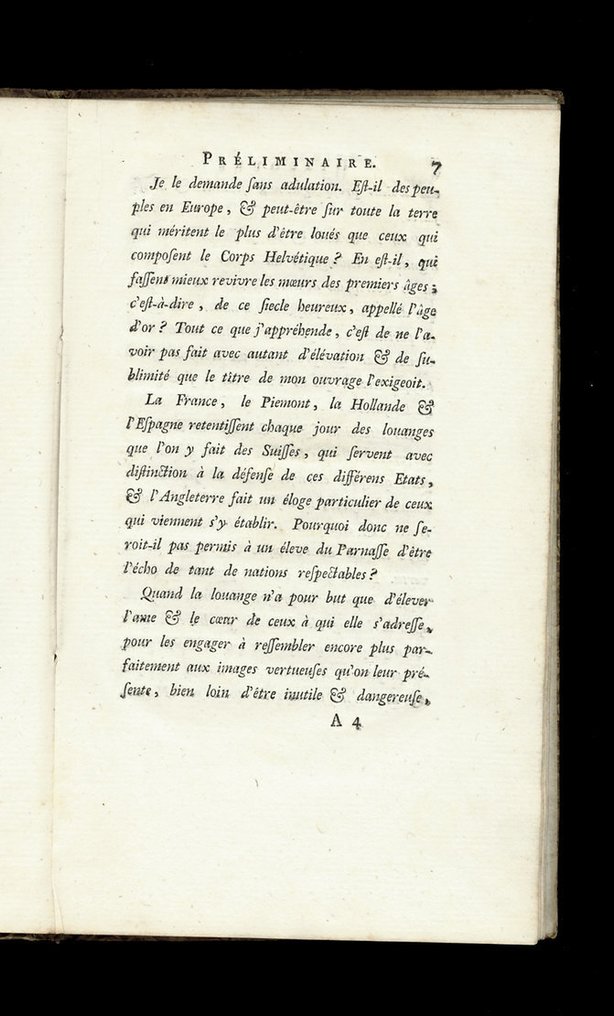 PRÉLIMINAIRE. 7
Je le demande ſans adulation. Eſt-il des peu-
ples en Europe, & peut-être ſur toute la terre
qui méritent le plus d'être loués que ceux qui
compoſent le Corps Helvétique? En eſt-il, qui
faſſent mieux revivre les mœurs des premiers âges;
c'eſt-à-dire, de ce ſiecle heureux, appellé l'âge
d'or? Tout ce que j'appréhende, c'eſt de ne l'a-
voir pas fait avec autant d'élévation & de ſu-
blimité que le titre de mon ouvrage l'exigeoit.
La France, le Piemont, la Hollande &
l'Eſpagne retentiſſent chaque jour des louanges
que l'on y fait des Suiſſes, qui ſervent avec
diſtinction à la défenſe de ces différens Etats,
& l'Angleterre fait un éloge particulier de ceux
qui viennent s'y établir. Pourquoi donc ne ſe-
roit-il pas permis à un éleve du Parnaſſe d'être
l'écho de tant de nations reſpectables?
Quand la louange n'a pour but que d'élever
l'ame & le cœur de ceux à qui elle s'adreſſe,
pour les engager à reſſembler encore plus par-
faitement aux images vertueuſes qu'on leur pré-
ſente, bien loin d'être inutile & dangereuſe,
A 4